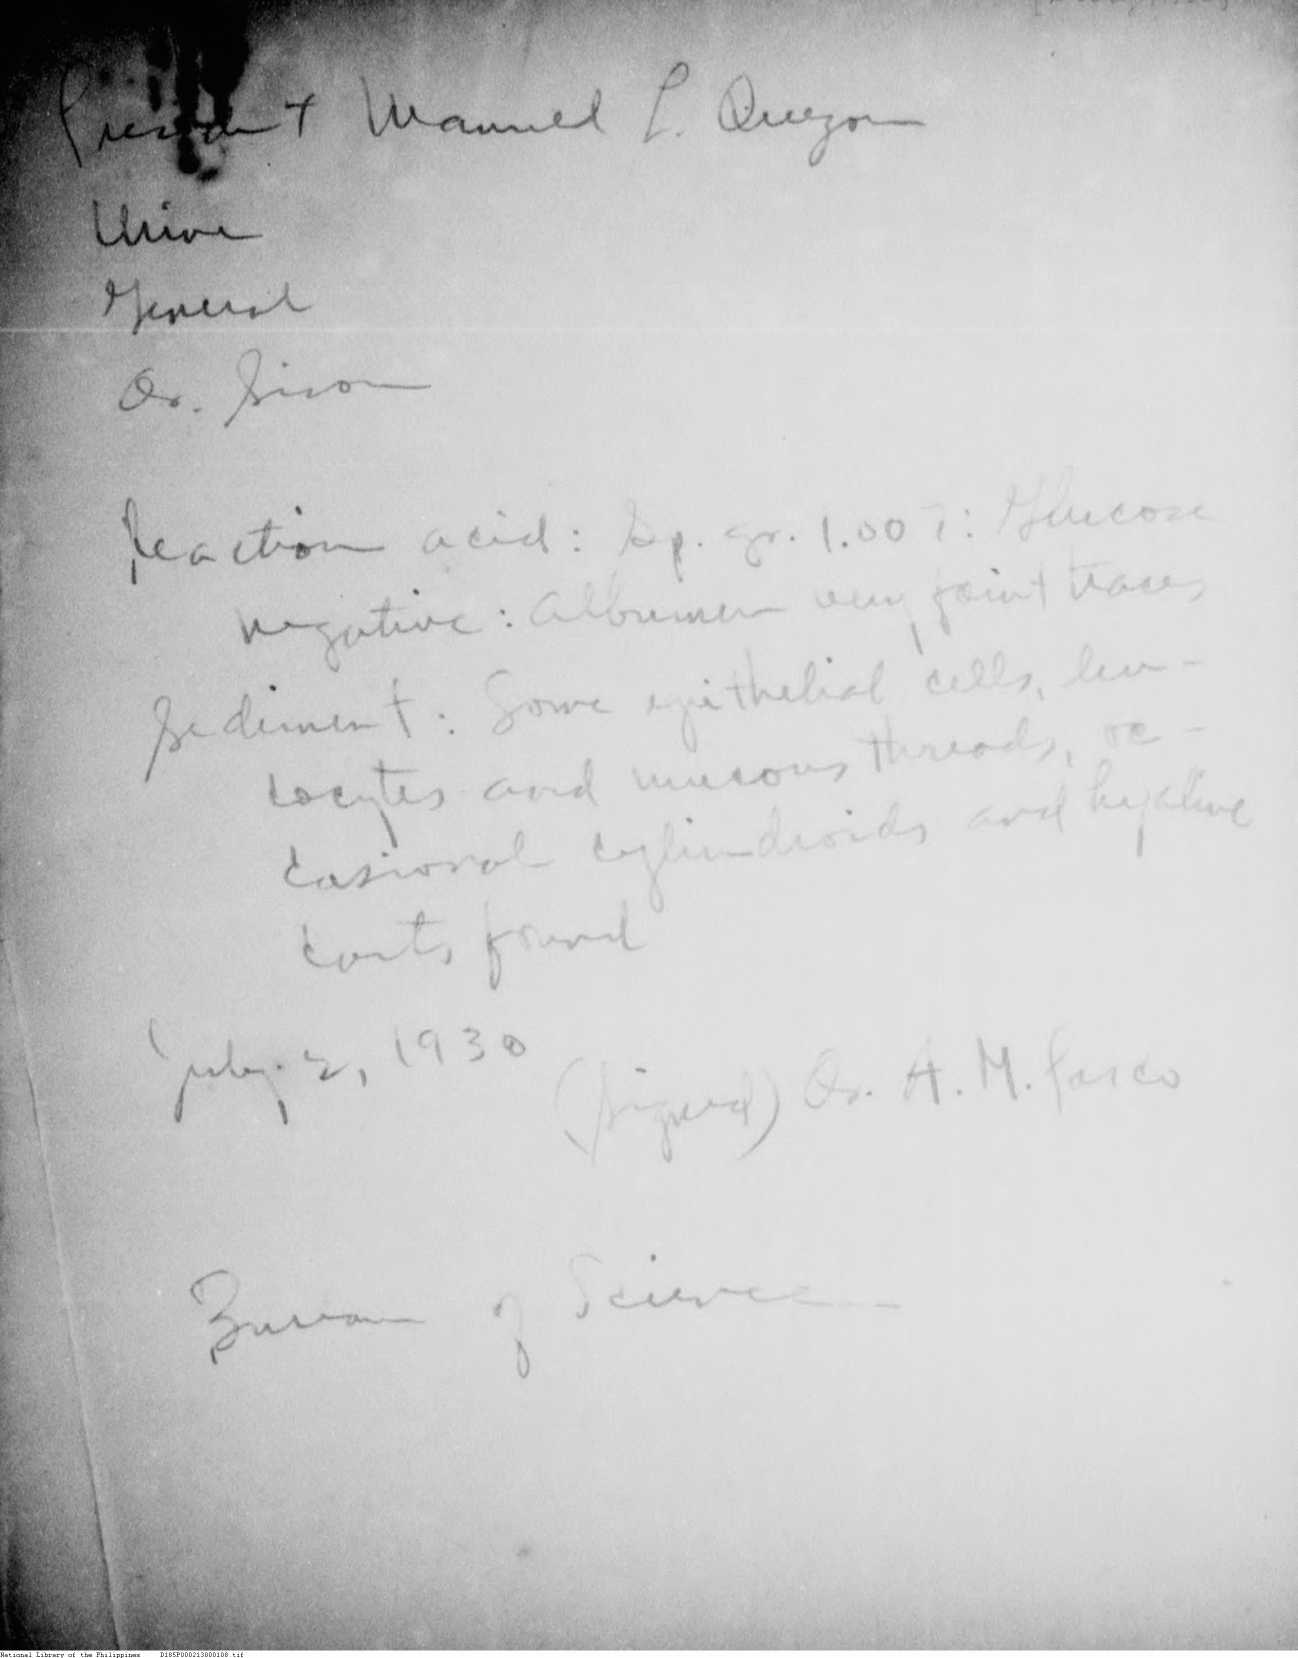 President Manuel L. Quezon
Urine
General
Dr. Sison
Reaction acid: Sp. gr. 1.007: Glucose
negative: Albumen very faint traces
Sediment: Some epithelial cells, leu-
cocytes and mucous threads, oc-
casional cylindroids and hyaline
casts found
July 2, 1930
(Signed) Dr. A. M. Pasco
Bureau of Science
National Library of the Philippines D185P000213000108.tif